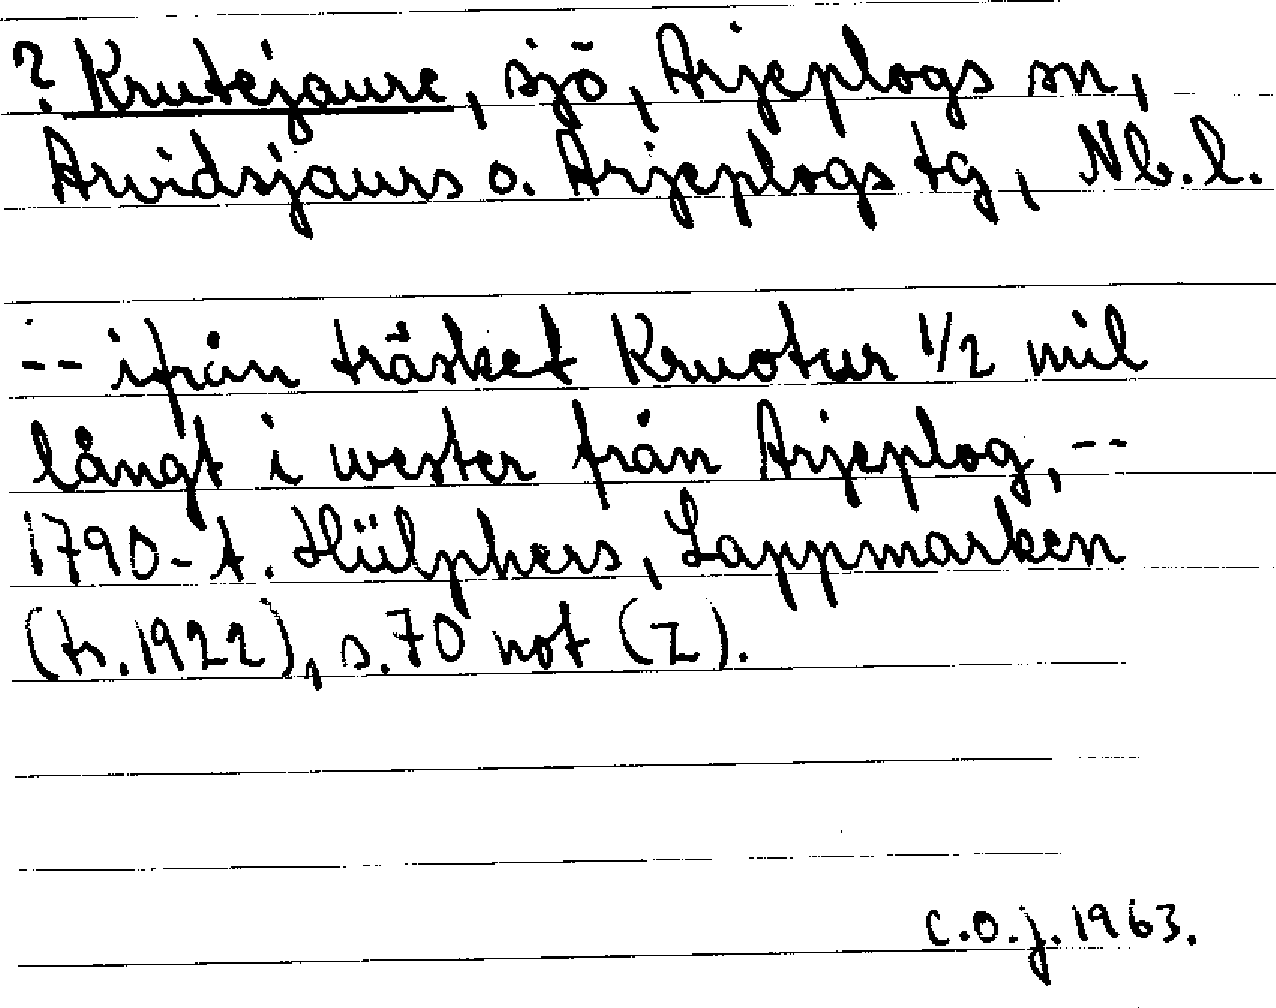 ? Krutejaure, sjö, Arjeplogs sn,
Arvidsjaurs o. Arjeplogs tg, Nb. l.
-- ifrån träsket Kruotur 1/2 mil
långt i wester från Arjeplog, --
1790-t. Hülphers, Lappmarken
(tr. 1922), s. 70 not (z).
C.O.J. 1963.